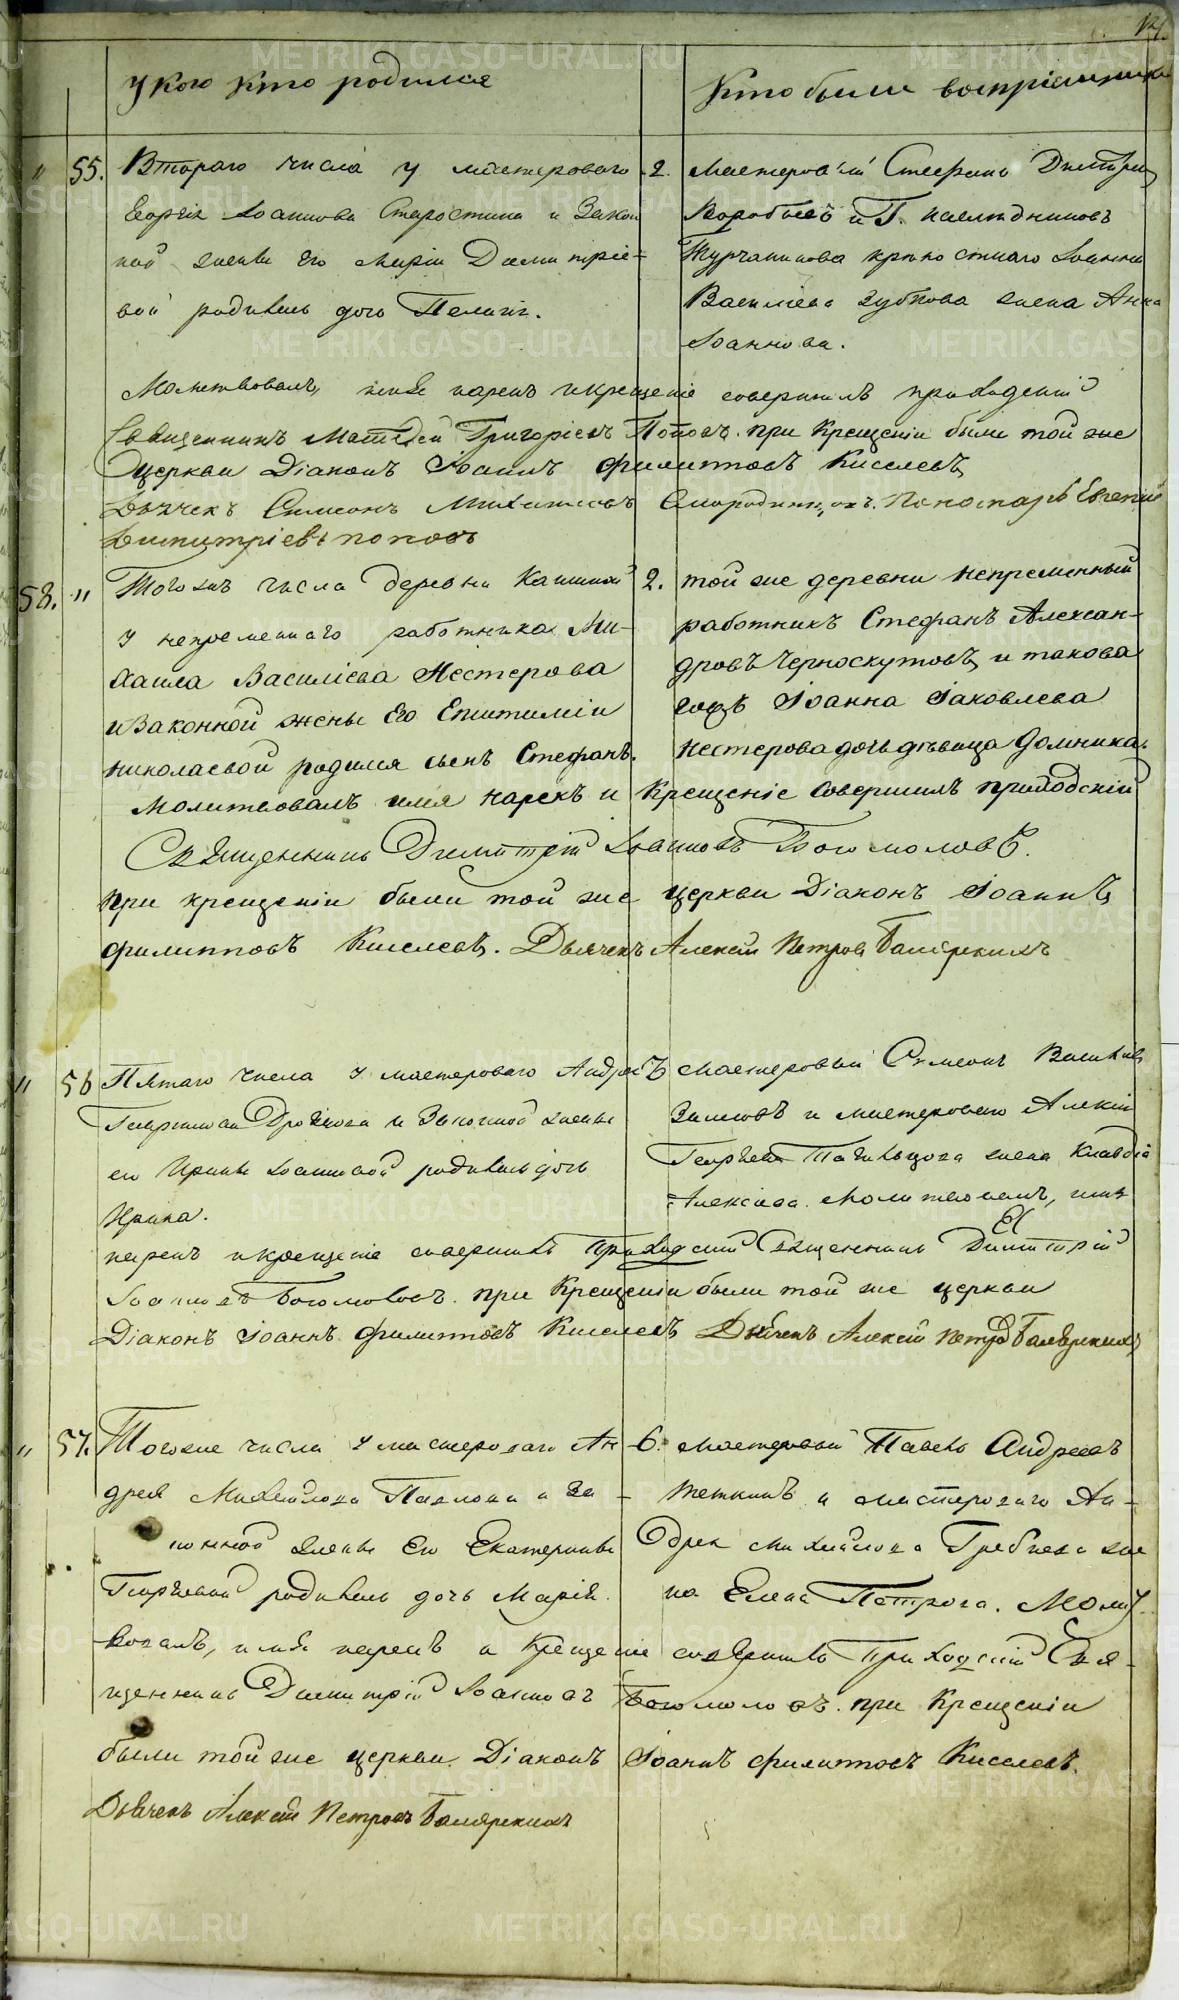 У кого кто родился
Кто были воспріемники
" 55. Втораго числа у мастероваго
Георгія Іоаннова Старостина и Закон
ной жены его Маріи Димитріе-
вой родилась дочь Пелагія.
2. Мастеровый Стефанъ Димитріевъ
Воробьевъ и Г. наследниковъ
Турчанинова крепостнаго Іоанна
Василіева Зубкова жена Анна
Іоаннова.
Молитвовалъ, имя нарекъ и крещеніе совершилъ приходскій
Священникъ Матвей Григоріевъ Поповъ. при Крещеніи были той же
церкви Діаконъ Іоаннъ Филипповъ Киселевъ
Дьячекъ Симеонъ Михаиловъ Смородинцовъ. Пономарь Евгеній
Димитріевъ Поповъ
58. " Того же числа деревни
у непременнаго работника Ми-
хаила Василіева Нестерова
и Законной жены Его Епитиміи
Николаевой родился сынъ Стефанъ.
2. той же деревни непременный
работникъ Стефанъ Алексан-
дровъ Черноскутовъ и такова
Іоанна Іаковлева
Нестерова дочь девица Домника.
Молитвовалъ имя нарекъ и Крещеніе совершилъ приходскій
Священникъ Димитрій Іоанновъ Богомоловъ.
при крещеніи были той же церкви Діаконъ Іоаннъ
Филипповъ Киселевъ. Дьячекъ Алексій Петровъ
" 56 Пятаго числа у мастероваго Андрея
Гавриилова и Законной жены
его Ирины Іоанновой родилась дочь
Ирина.
Мастеровый Симеонъ
и мастероваго Алексія
Георгіева жена Клавдія
Алексіева. Молитвовалъ, имя
нарекъ и крещеніе совершилъ Приходскій Священникъ Димитрій
Іоанновъ Богомоловъ. при Крещеніи были той же церкви
Діаконъ Іоаннъ Филипповъ Киселевъ Дьячекъ Алексій Петровъ
" 57. Того же числа у мастероваго Ан
дрея Михайлова Павлова и За-
конной жены Его Екатерины
Георгіевой родилась дочь Марія.
6. Мастеровый Павелъ Андреевъ
и мастероваго Ан-
дрея Михайлова Гребнева же
на Елена Петрова. Молит
вовалъ, имя нарекъ и Крещеніе совершилъ Приходскій Свя-
щенникъ Димитрій Іоанновъ Богомоловъ. при Крещеніи
были той же церкви Діаконъ Іоаннъ Филипповъ Киселевъ.
Дьячекъ Алексій Петровъ
METRIKI.GASO-URAL.RU